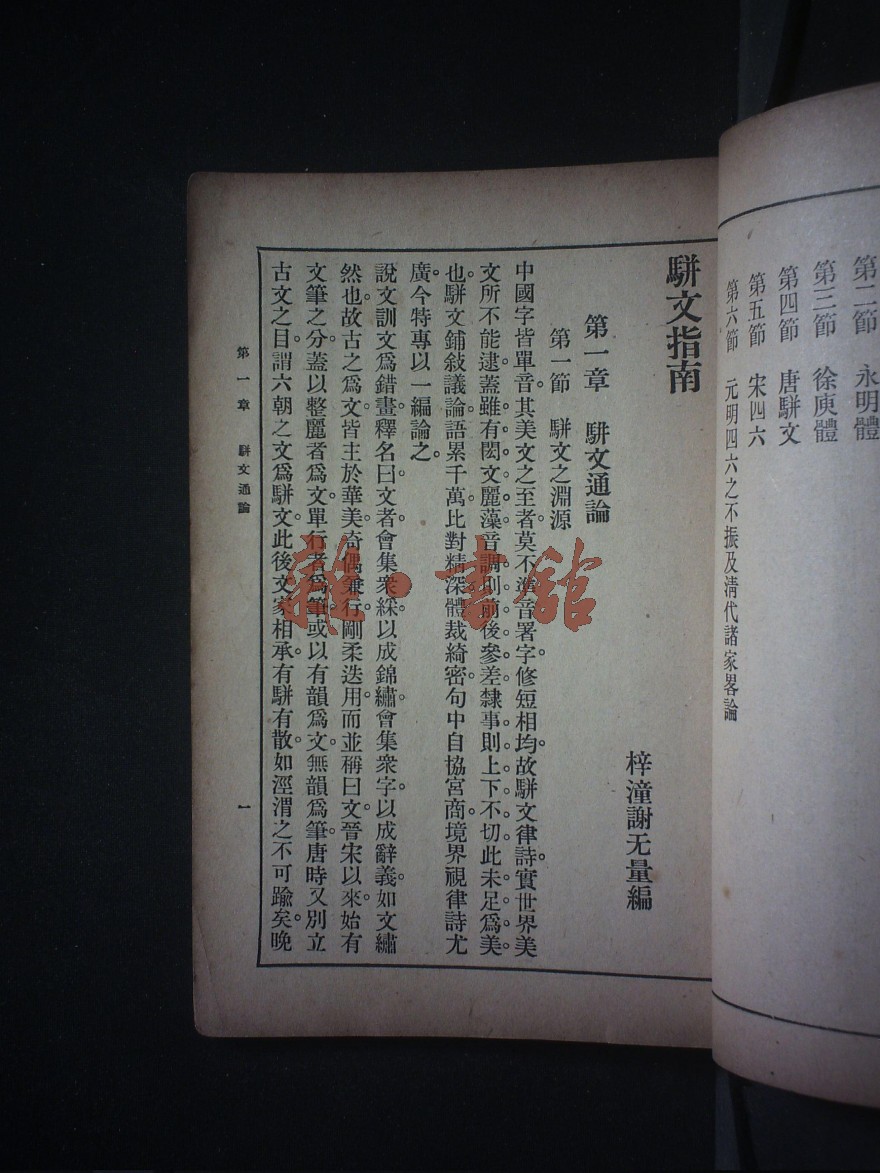 第二節　永明體
第三節　徐庾體
第四節　唐駢文
第五節　宋四六
第六節　元明四六之不振及清代諸家畧論
駢文指南
梓潼謝无量編
第一章　駢文通論
第一節　駢文之淵源
中國字皆單音。其美文之至者。莫不準音署字。修短相均。故駢文律詩。實世界美
文所不能逮。蓋雖有閎文麗藻。音調則前後參差。隸事則上下不切。此未足爲美
也。駢文鋪敍議論。語累千萬。比對精深。體裁綺密。句中自協宮商。境界視律詩尤
廣。今特專以一編論之。
說文訓文爲錯畫。釋名曰。文者。會集衆綵。以成錦繡。會集衆字。以成辭義。如文繡
然也。故古之爲文。皆主於華美。奇偶兼行。剛柔迭用。而並稱曰文。晉宋以來。始有
文筆之分。蓋以整麗者爲文。單行者爲筆。或以有韻爲文。無韻爲筆。唐時又別立
古文之目。謂六朝之文爲駢文。此後文家相承。有駢有散。如涇渭之不可踰矣。晚
第一章　駢文通論
一
龍·書館